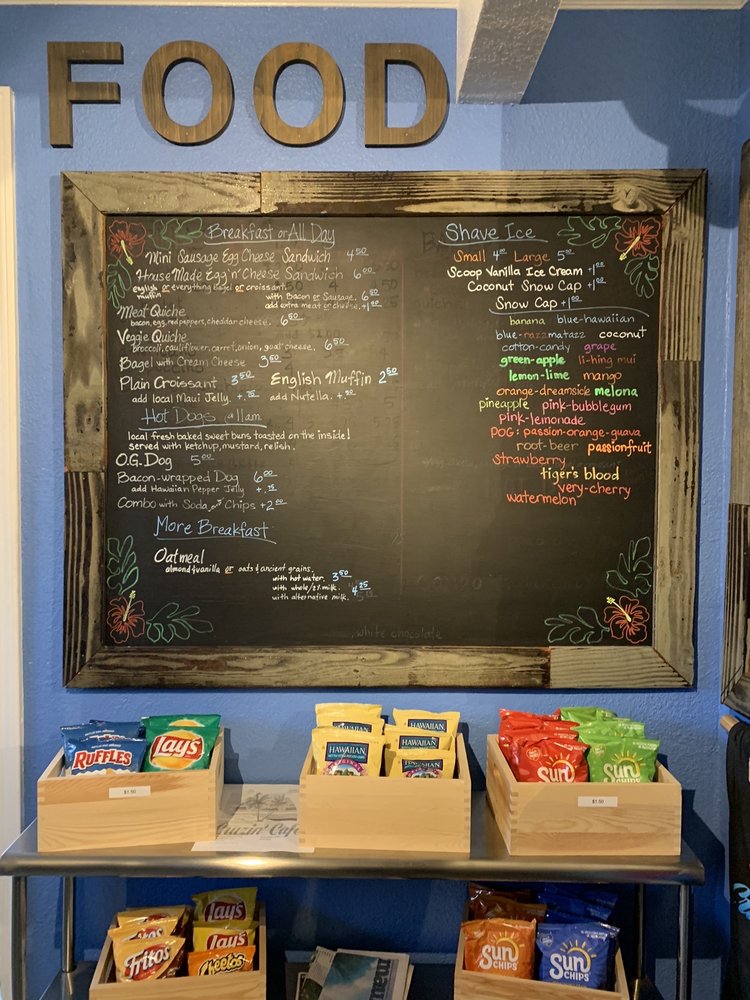 FOOD
Breakfast or All Day
Mini Sausage Egg Cheese Sandwich 4.50
House Made Egg 'n' Cheese Sandwich 6.00
english or everything bagel or croissant.
muffin
with Bacon or Sausage. 6.50
add extra meat or cheese. +1.00
Meat Quiche
bacon, egg, red peppers, cheddar cheese. 6.50
Veggie Quiche
broccoli, cauliflower, carrot, onion, goat cheese. 6.50
Bagel with Cream Cheese 3.50
Plain Croissant 3.50 English Muffin 2.50
add local Maui Jelly. +.75 add Nutella. +.50
Hot Dogs @ 11am
local fresh baked sweet buns toasted on the inside!
served with ketchup, mustard, relish.
O.G. Dog 5.00
Bacon-wrapped Dog 6.00
add Hawaiian Pepper Jelly +.75
Combo with Soda, Chips +2.00
More Breakfast
Oatmeal
almond & vanilla or oats & ancient grains.
with hot water. 3.50
with whole/2% milk. 4.25
with alternative milk.
Shave Ice
Small 4.00 Large 5.00
Scoop Vanilla Ice Cream +1.00
Coconut Snow Cap +1.00
Snow Cap +1.00
banana blue-hawaiian
blue-razzmatazz coconut
cotton-candy grape
green-apple li-hing mui
lemon-lime mango
orange-dreamside melona
pineapple pink-bubblegum
pink-lemonade
POG: passion-orange-guava
root-beer passionfruit
strawberry
tiger's blood
very-cherry
watermelon
, white chocolate
Ruffles
Lay's
$1.50
HAWAIIAN
HAWAIIAN
HAWAIIAN
HAWAIIAN
Sun
CHIPS
Sun
CHIPS
$1.50
Cruzin' Cafe
Lay's
Lay's
Fritos
Cheetos
Sun
CHIPS
Sun
CHIPS